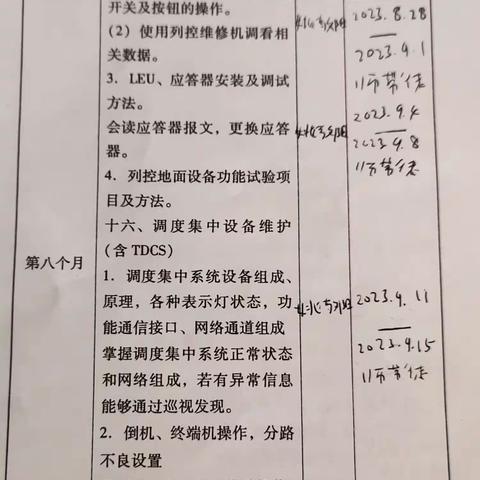 开关及按钮的操作。
(2) 使用列控维修机调看相
关数据。
3．LEU、应答器安装及调试
方法。
会读应答器报文，更换应答
器。
4．列控地面设备功能试验项
目及方法。
十六、调度集中设备维护
(含 TDCS)
第八个月
1．调度集中系统设备组成、
原理，各种表示灯状态，功
能通信接口、网络通道组成
掌握调度集中系统正常状态
和网络组成，若有异常信息
能够通过巡视发现。
2．倒机、终端机操作，分路
不良设置
2023.8.28
2023.9.1
师带徒
2023.9.4
2023.9.8
师带徒
2023.9.11
2023.9.15
师带徒